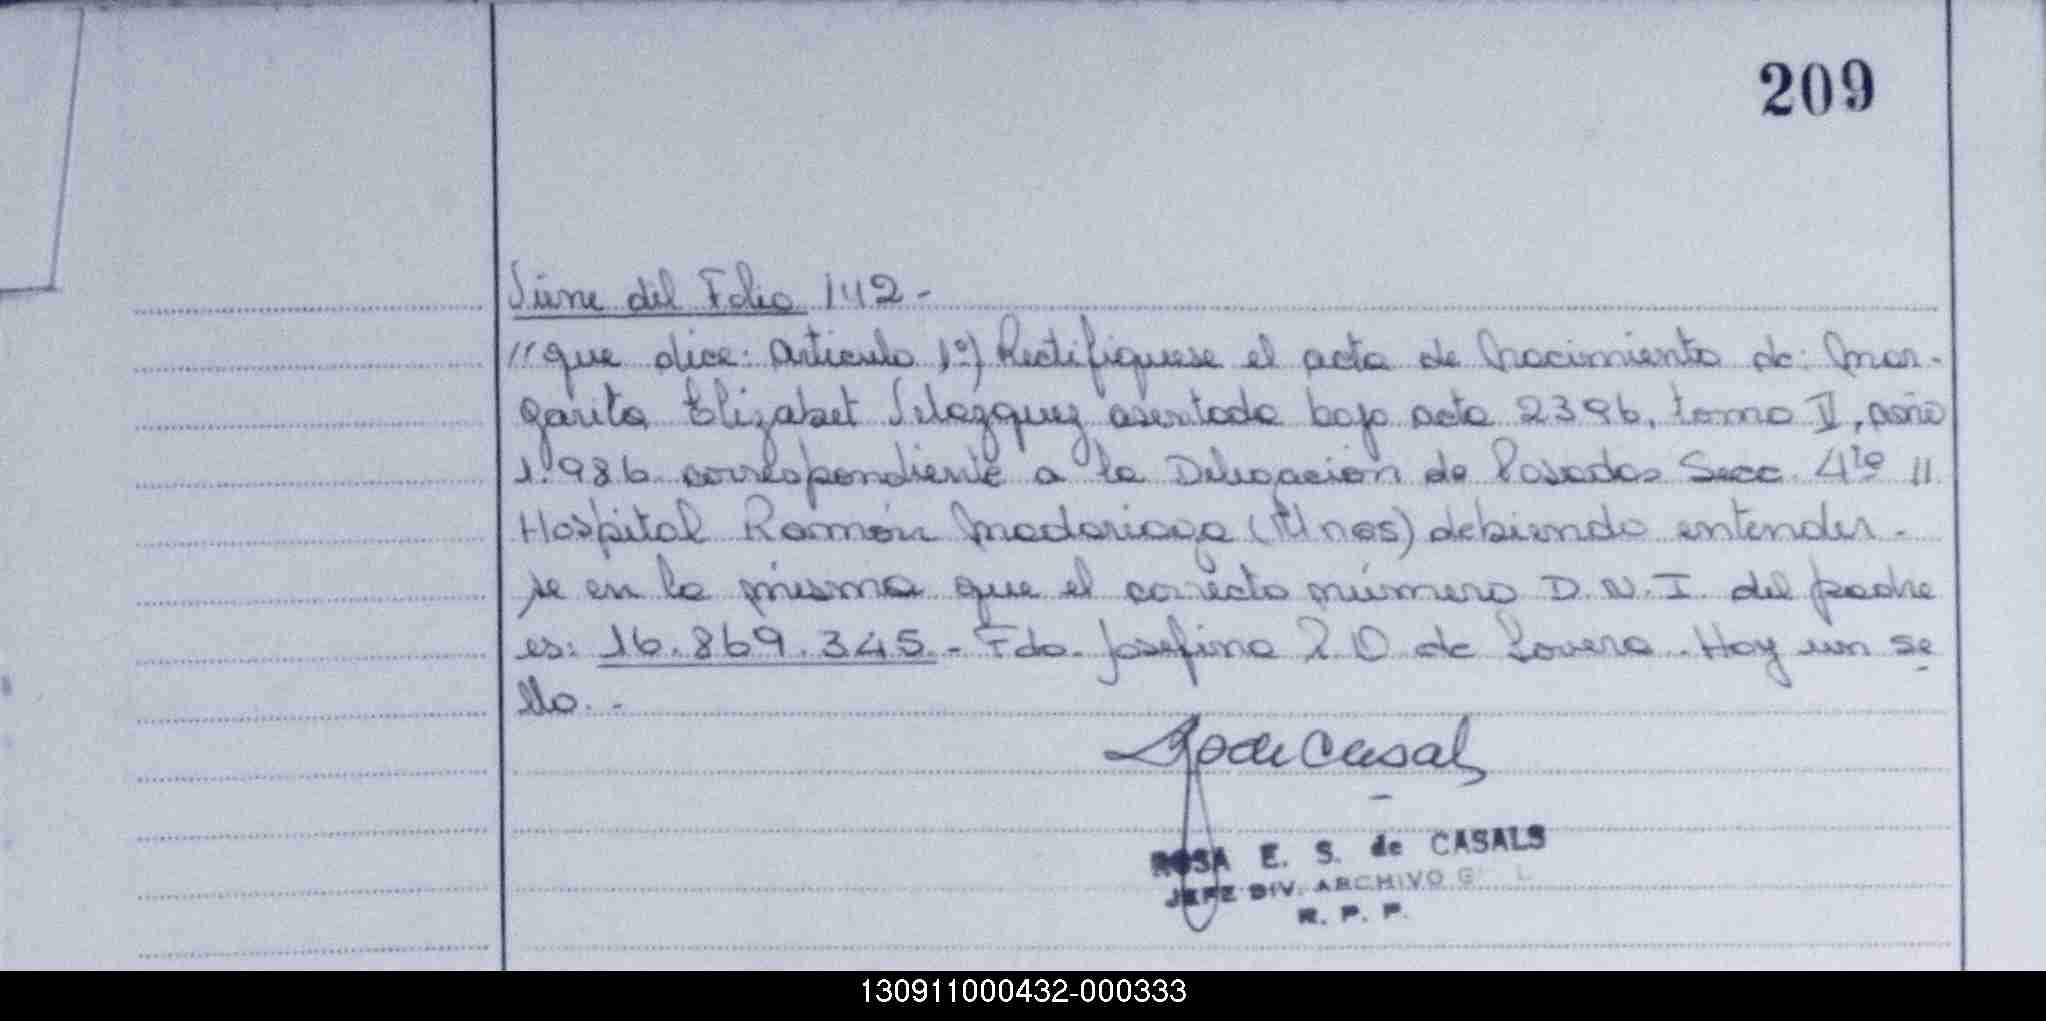 209
Viene del Folio 142-
"que dice: Articulo 1º) Rectifiquese el acta de Nacimiento de: Mar-
garita Elizabet Velazquez asentada bajo acta 2396, tomo V, año
1.986 correspondiente a la Delegación de Posadas Secc. 4ta "
Hospital Ramón Madariaga (Mnes) debiendo entender-
se en la misma que el correcto número D.N.I. del padre
es: 16.869.345.- Fdo. Josefina R O de Lovera. Hay un se
llo.-
ROSA E. S. de CASALS
JEFE DIV. ARCHIVO
R. P. P.
130911000432-000333